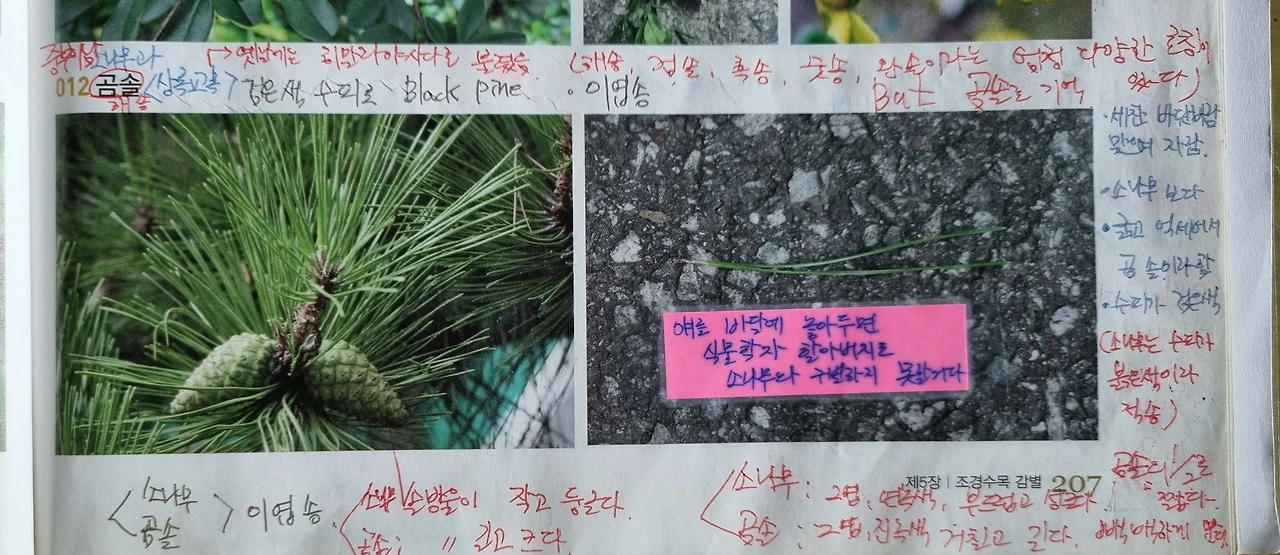 소나무과 → 옛날에는 리만라야시다로 불렸음. (해송, 검솔, 흑송, 곳솔, 완솔이라는 엄청 다양한 호칭이 있다)
012 곰솔 <상록교목> 검은색 수피로 Black pine. · 이엽송 But 곰솔로 기억
해송
· 세찬 바닷바람
맞으며 자람.
· 소나무 보다
· 굵고 억세어서
곰솔이라 함
· 수피가 검은색
(소나무는 수피가
붉은색이라
적송)
얘를 바닥에 놓아두면
식물학자 할아버지도
소나무와 구별하지 못할거다
제5장 | 조경수목 감별 207
소나무
곰솔
이엽송.
소나무 솔방울이 작고 둥글다.
곰솔: 〃 길고 크다.
소나무: 2엽, 연녹색, 부드럽고
곰솔: 2엽, 진녹색 거칠고 길다.
곰솔의 1/2로
짧다.